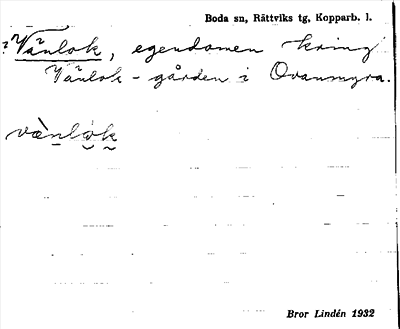 Boda sn, Rättviks tg, Kopparb. l.
? Vänlok, egendomen kring
Vänlok-gården i Ovanmyra.
væ̀nlok
Bror Lindén 1932